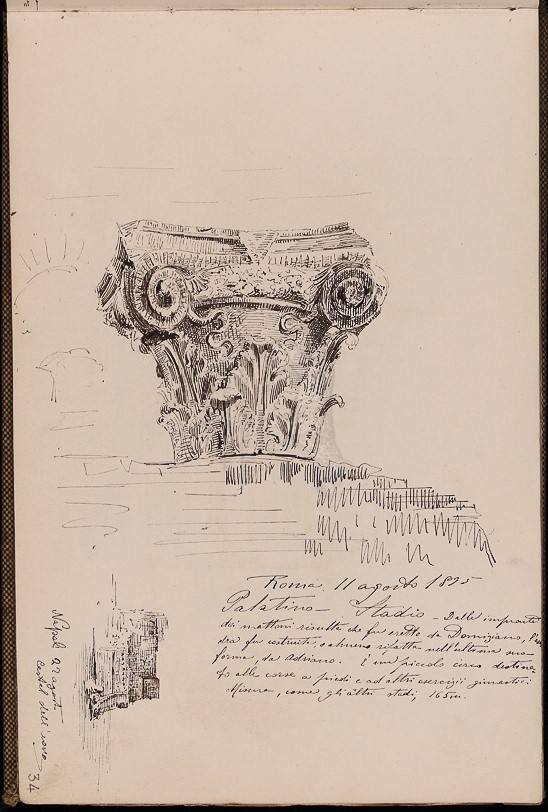 Roma. 11 agosto 1895
Palatino — Stadio — Dalle impronte
dei mattoni risulta che fu eretto da Domiziano,
fu costruita, o almeno rifatta nell'ultima sua
forma, da Adriano. È un piccolo circo destina-
to alle corse a piedi e ad altri esercizii ginnastici
Misura, come gli altri stadi, 165m.
Napoli 22 agosto
Castel dell'ovo
34